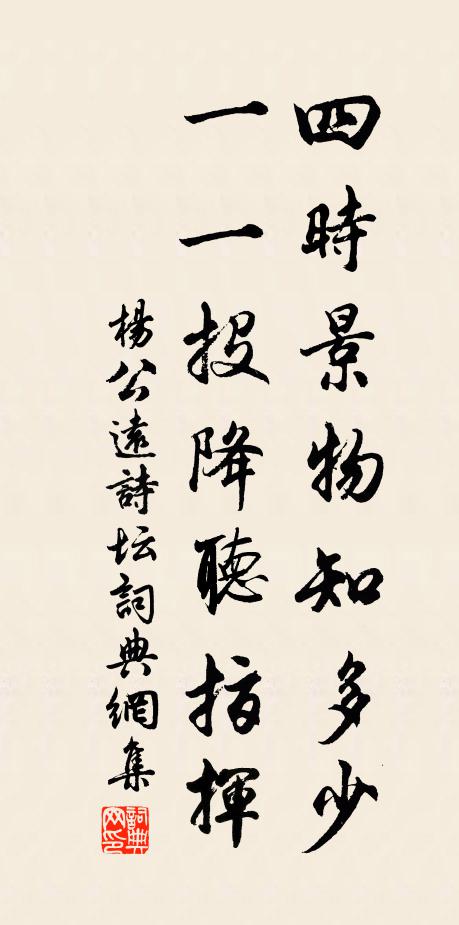 四時景物知多少
一一投降聽指揮
楊公遠詩坛詞典網集
詞典网印